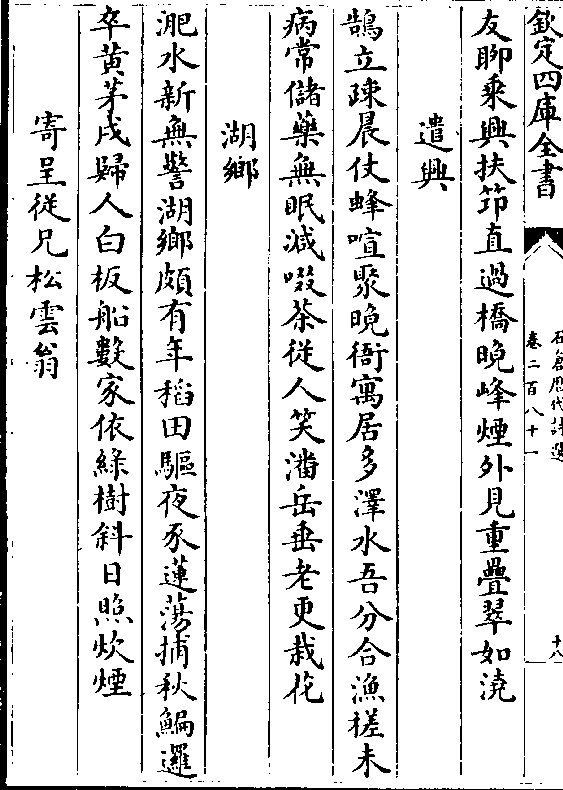 欽定四庫全書
石倉歷代詩選
卷二百八十一
十八
友聊乘興扶笻直過橋晚峰煙外見重疊翠如澆
遣興
鵠立疎晨仗蜂喧聚晚衙寓居多澤水吾分合漁槎未
病常儲藥無眠減啜茶從人笑潘岳垂老更栽花
湖鄉
淝水新無警湖鄉頗有年稻田驅夜豕蓮蕩捕秋鯿邏
卒黃茅戍歸人白板船數家依綠樹斜日照炊煙
寄呈從兄松雲翁